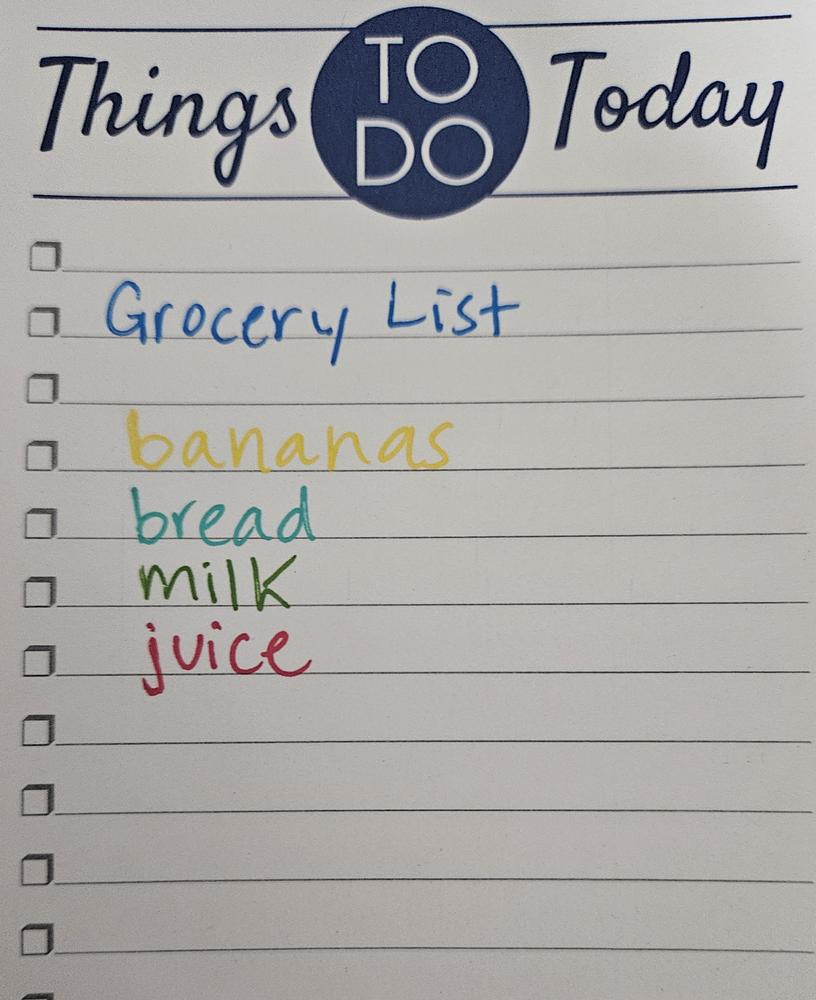 Things TO DO Today
Grocery List
bananas
bread
milk
juice